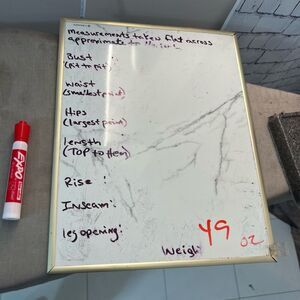 Measurements taken flat across
approximate to
Bust :
(pit to pit)
Waist :
(smallest point)
Hips :
(largest point)
length :
(TOP to Hem)
Rise :
Inseam :
leg opening :
Weigh
49
oz
EXPO